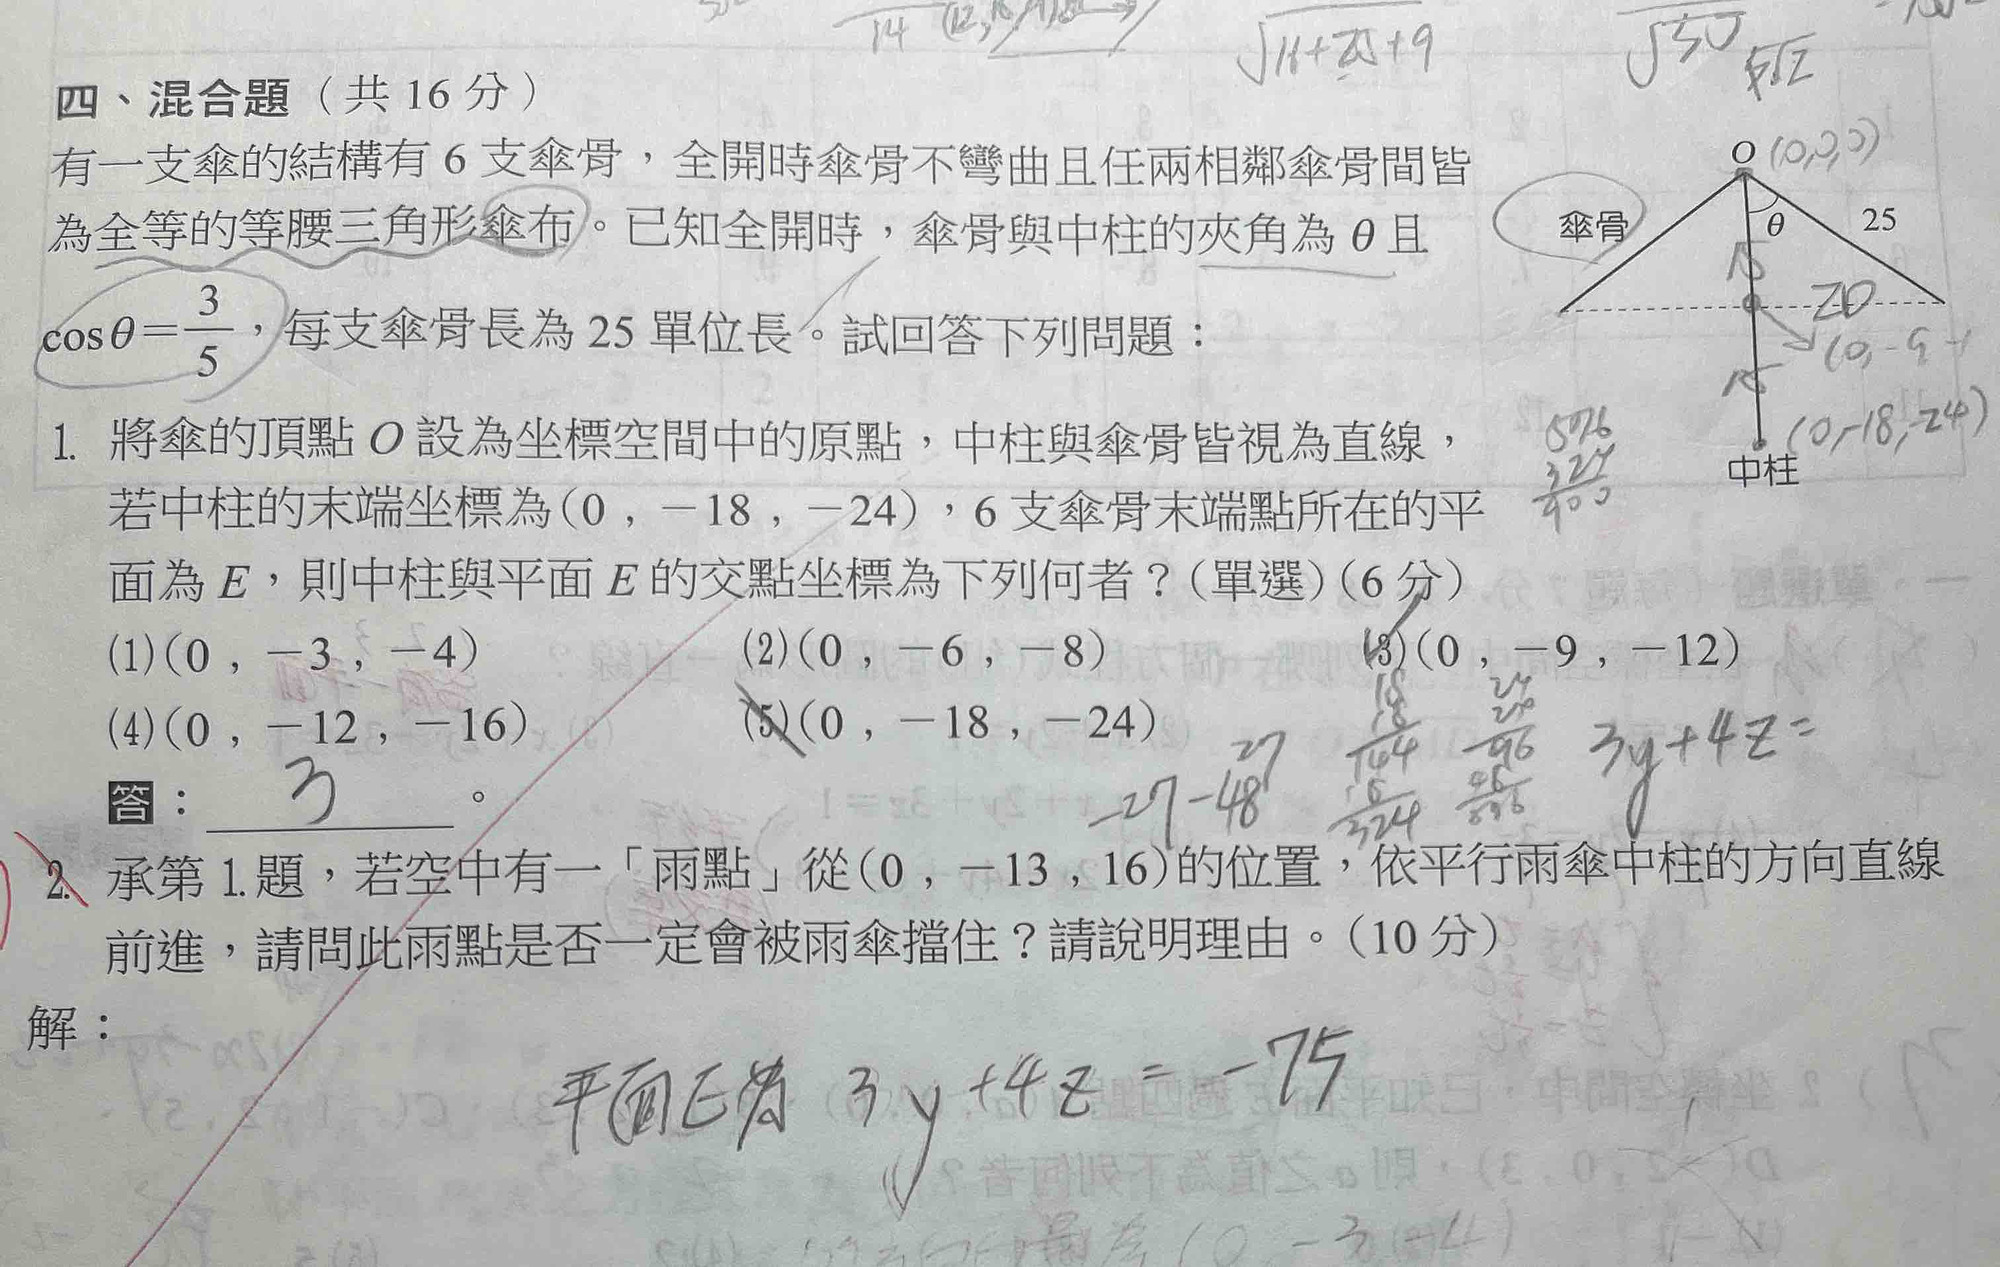 14
√16+25+9
√50
5√2
四、混合題（共 16 分）
有一支傘的結構有 6 支傘骨，全開時傘骨不彎曲且任兩相鄰傘骨間皆
為全等的等腰三角形傘布。已知全開時，傘骨與中柱的夾角為 θ 且
cosθ=3/5，每支傘骨長為 25 單位長。試回答下列問題：
O (0,0,0)
傘骨
θ
25
15
20
(0,-9,-
15
(0,-18,-24)
中柱
1. 將傘的頂點 O 設為坐標空間中的原點，中柱與傘骨皆視為直線，
若中柱的末端坐標為(0，-18，-24)，6 支傘骨末端點所在的平
面為 E，則中柱與平面 E 的交點坐標為下列何者？(單選)(6 分)
576
324
900
(1)(0，-3，-4)
(2)(0，-6，-8)
(3)(0，-9，-12)
(4)(0，-12，-16)
(5)(0，-18，-24)
18
18
144
18
324
24
24
96
3y+4z=
27
-27-48
答：3。
2. 承第 1.題，若空中有一「雨點」從(0，-13，16)的位置，依平行雨傘中柱的方向直線
前進，請問此雨點是否一定會被雨傘擋住？請說明理由。(10 分)
解：
平面E為 3y+4z=-75
(0,-3,-4)